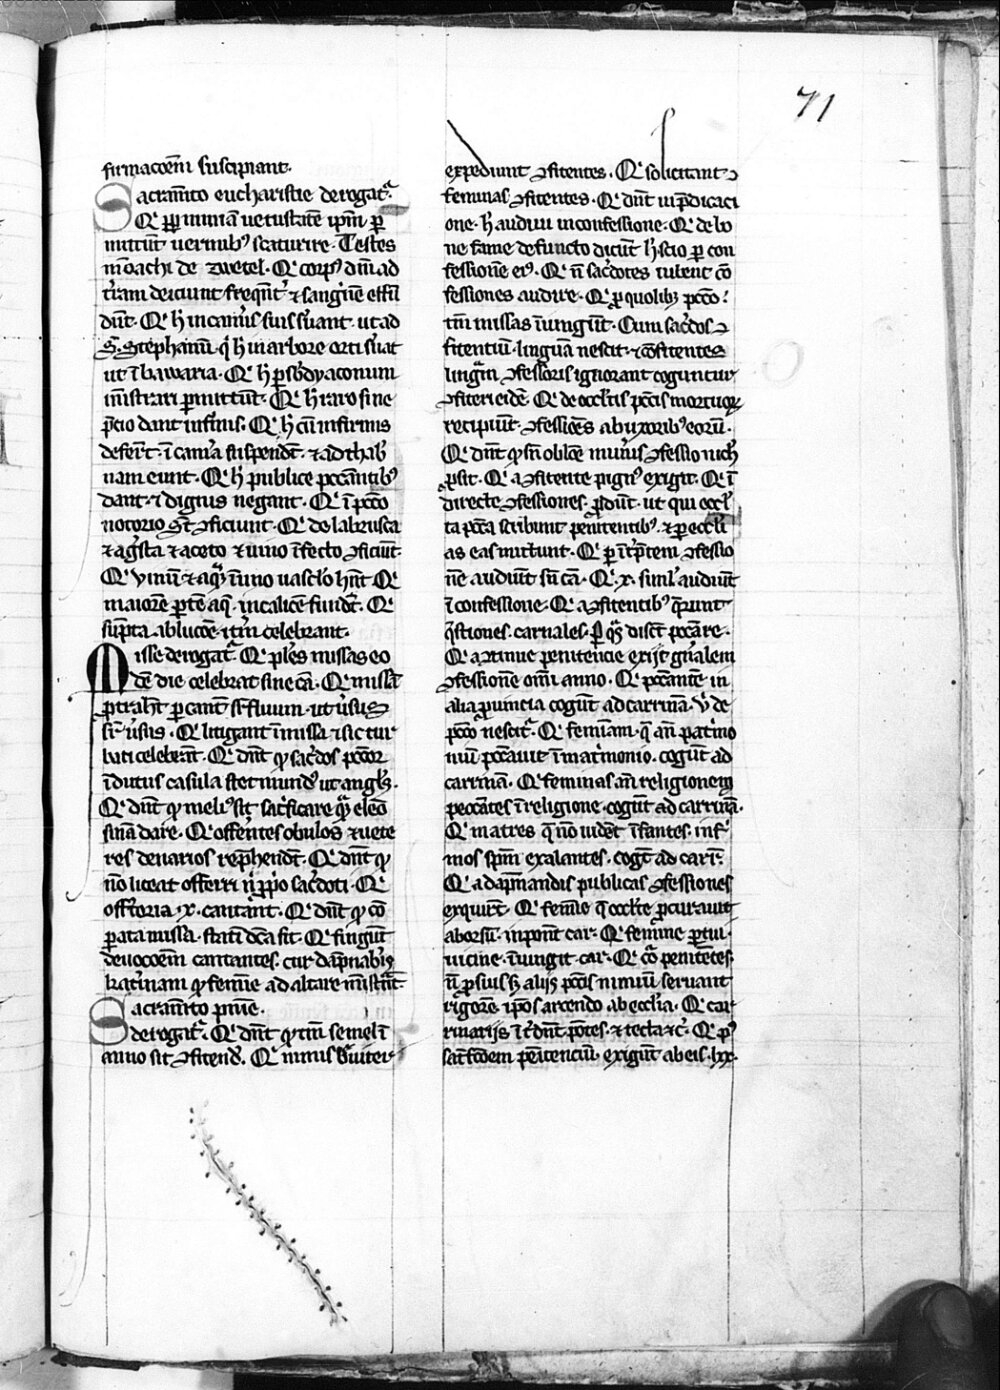 71
firmacōem suscipiant.
Sacram̄to eucharistie derogat᷑.
Qͥ ꝑp nimiā uetustatē ip̄m ꝑ
mittūt uermibꝰ scaturire. Testes
mōachi de zwetel. Qͥ corpꝰ dn̄i ad
t̄ram deiciunt freqn̄t᷑ ⁊ sanguinē effū
dūt. Qͥ h̄ in cam̄is suis s̄uant. ut ad
S. Stephanū. qͥ h̄ in arbore orti s̄uāt
ut ī bawaria. Qͥ h̄ ꝑ sb̄dyaconum
mīstrari ꝑmittūt. Qͥ h̄ raro sine
p̄cio dant infirmis. Qͥ h̄ cū infirmis
defer̄t. ī cam̄a suspendūt. ⁊ ad thab̄
nam eunt. Qͥ h̄ publice peccantibꝰ
dant. ⁊ dignis negant. Qͥ ī pccō
notorio st̄ ꝯficiunt. Qͥ de labrusca
⁊ ag̓sta ⁊ aceto ⁊ uino īfecto ꝯficiūt.
Qͥ vinū ⁊ aquā ī uno vasclo hn̄t. Qͥ
maiorē ꝑtē aq̄. in calicē fundūt. Qͥ
sūpta ablucōe. itm̄ celebrant.
Misse derogat᷑. Qͥ pl̄es missas eo
dē die celebrāt sine cā. Qͥ missā
ꝓtrahūt ꝑ cantū sr̄fluum. ut ūsus
sr̄ ūsus. Qͥ litigant ī missa ⁊ sic tur
bati celebrāt. Qͥ dn̄t ꝙ sac̄dos pccōr
īdutus casula stet mundꝰ ut angl̄s.
Qͥ dn̄t ꝙ meliꝰ sit sac̄ficare quā eleō
sinā dare. Qͥ offerētes obulos ⁊ uete
res denarios rep̄hendūt. Qͥ dn̄t ꝙ
nō liceat offerri n̄ ꝓprio sac̄doti. Qͥ
offitoria .x. cantant. Qͥ dn̄t ꝙ cō
ꝑata missa. statī dc̄a sit. Qͥ fingūt
deuocōem cantantes. cur dāpnabis
kat̄inam ꝙ femīe ad altare mīstrāt.
Sacram̄to pn̄īe.
derogat᷑. Qͥ dn̄t ꝙ tm̄ semel ī
anno sit ꝯfitendū. Qͥ nimis breuiter
expediunt ꝯfitentes. Qͥ solicitant
feminas ꝯfitentes. Qͥ dn̄t in p̄dicaci
one. h̄ audiui in confessione. Qͥ de bo
ne fame defuncto dicūt h̄ scio ꝑ con
fessionē eiꝰ. Qͥ n̄ sac̄dotes iubent cō
fessiones audire. Qͥ ꝑ quolibꝫ pccō.
tm̄ missas iniungūt. Cum sac̄dos ꝯ
fitentiū. linguā nescit. ⁊ cōfitentes
linguā ꝯfessoris ignorant coguntur
ꝯfiteri eidē. Qͥ de occl̄tis pccīs mortuoꝝ
recipiūt. ꝯfessiōes ab uxoribꝰ eorū.
Qͥ dn̄t ꝙ sn̄ oblōe mun̄is ꝯfessio nich̄
ꝓsit. Qͥ a ꝯfitente pignꝰ exigit. Qͥ ī
directe ꝯfessiones. ꝓdūt. ut qui occl̄
ta pccā scribunt penitentibꝰ. ⁊ ꝑ eccl̄i
as eas mittunt. Qͥ ꝑ īt̄p̄tem ꝯfessio
nē audiūt sn̄ cā. Qͥ .x. siml̄ audiūt
ī confessione. Qͥ a ꝯfitentibꝰ q̄runt
q̄stiones. carnales. ꝑ quas discūt pccāre.
Qͥ a ꝯtinue penitencie exijt gn̄alem
ꝯfessionē omī anno. Qͥ pccāntē in
alia ꝓuincia cogūt ad carrinā. ubi de
pccō nescit᷑. Qͥ feminam. q̄ an̄ mat̓mo
niū pccāuit ī mat̓monio. cogūt ad
carrinā. Qͥ feminas an̄ religionem
peccātes ī religione. cogūt ad carrinā.
Qͥ matres q̄ nō uidēt īfantes. inf̄
mos spm̄ exalantes. cogūt ad carī.
Qͥ a dāpnandis publicas ꝯfessiones
exquirūt. Qͥ femīe q̄ occl̄te ꝓcurauit
aborsū. inponūt car. Qͥ femine
uicine. īiungit car. Qͥ cōtra penitētes
n̄ ꝓ suis sꝫ alijs pccīs nimiū seruant
rigorē. ip̄os arcendo ab ecclia. Qͥ car
rinarijs īt̄dūt pōtes. ⁊ tecta ⁊c̄. Qͥ pꝰ
satisfcōem penitenciū. exigūt ab eis .lxx.